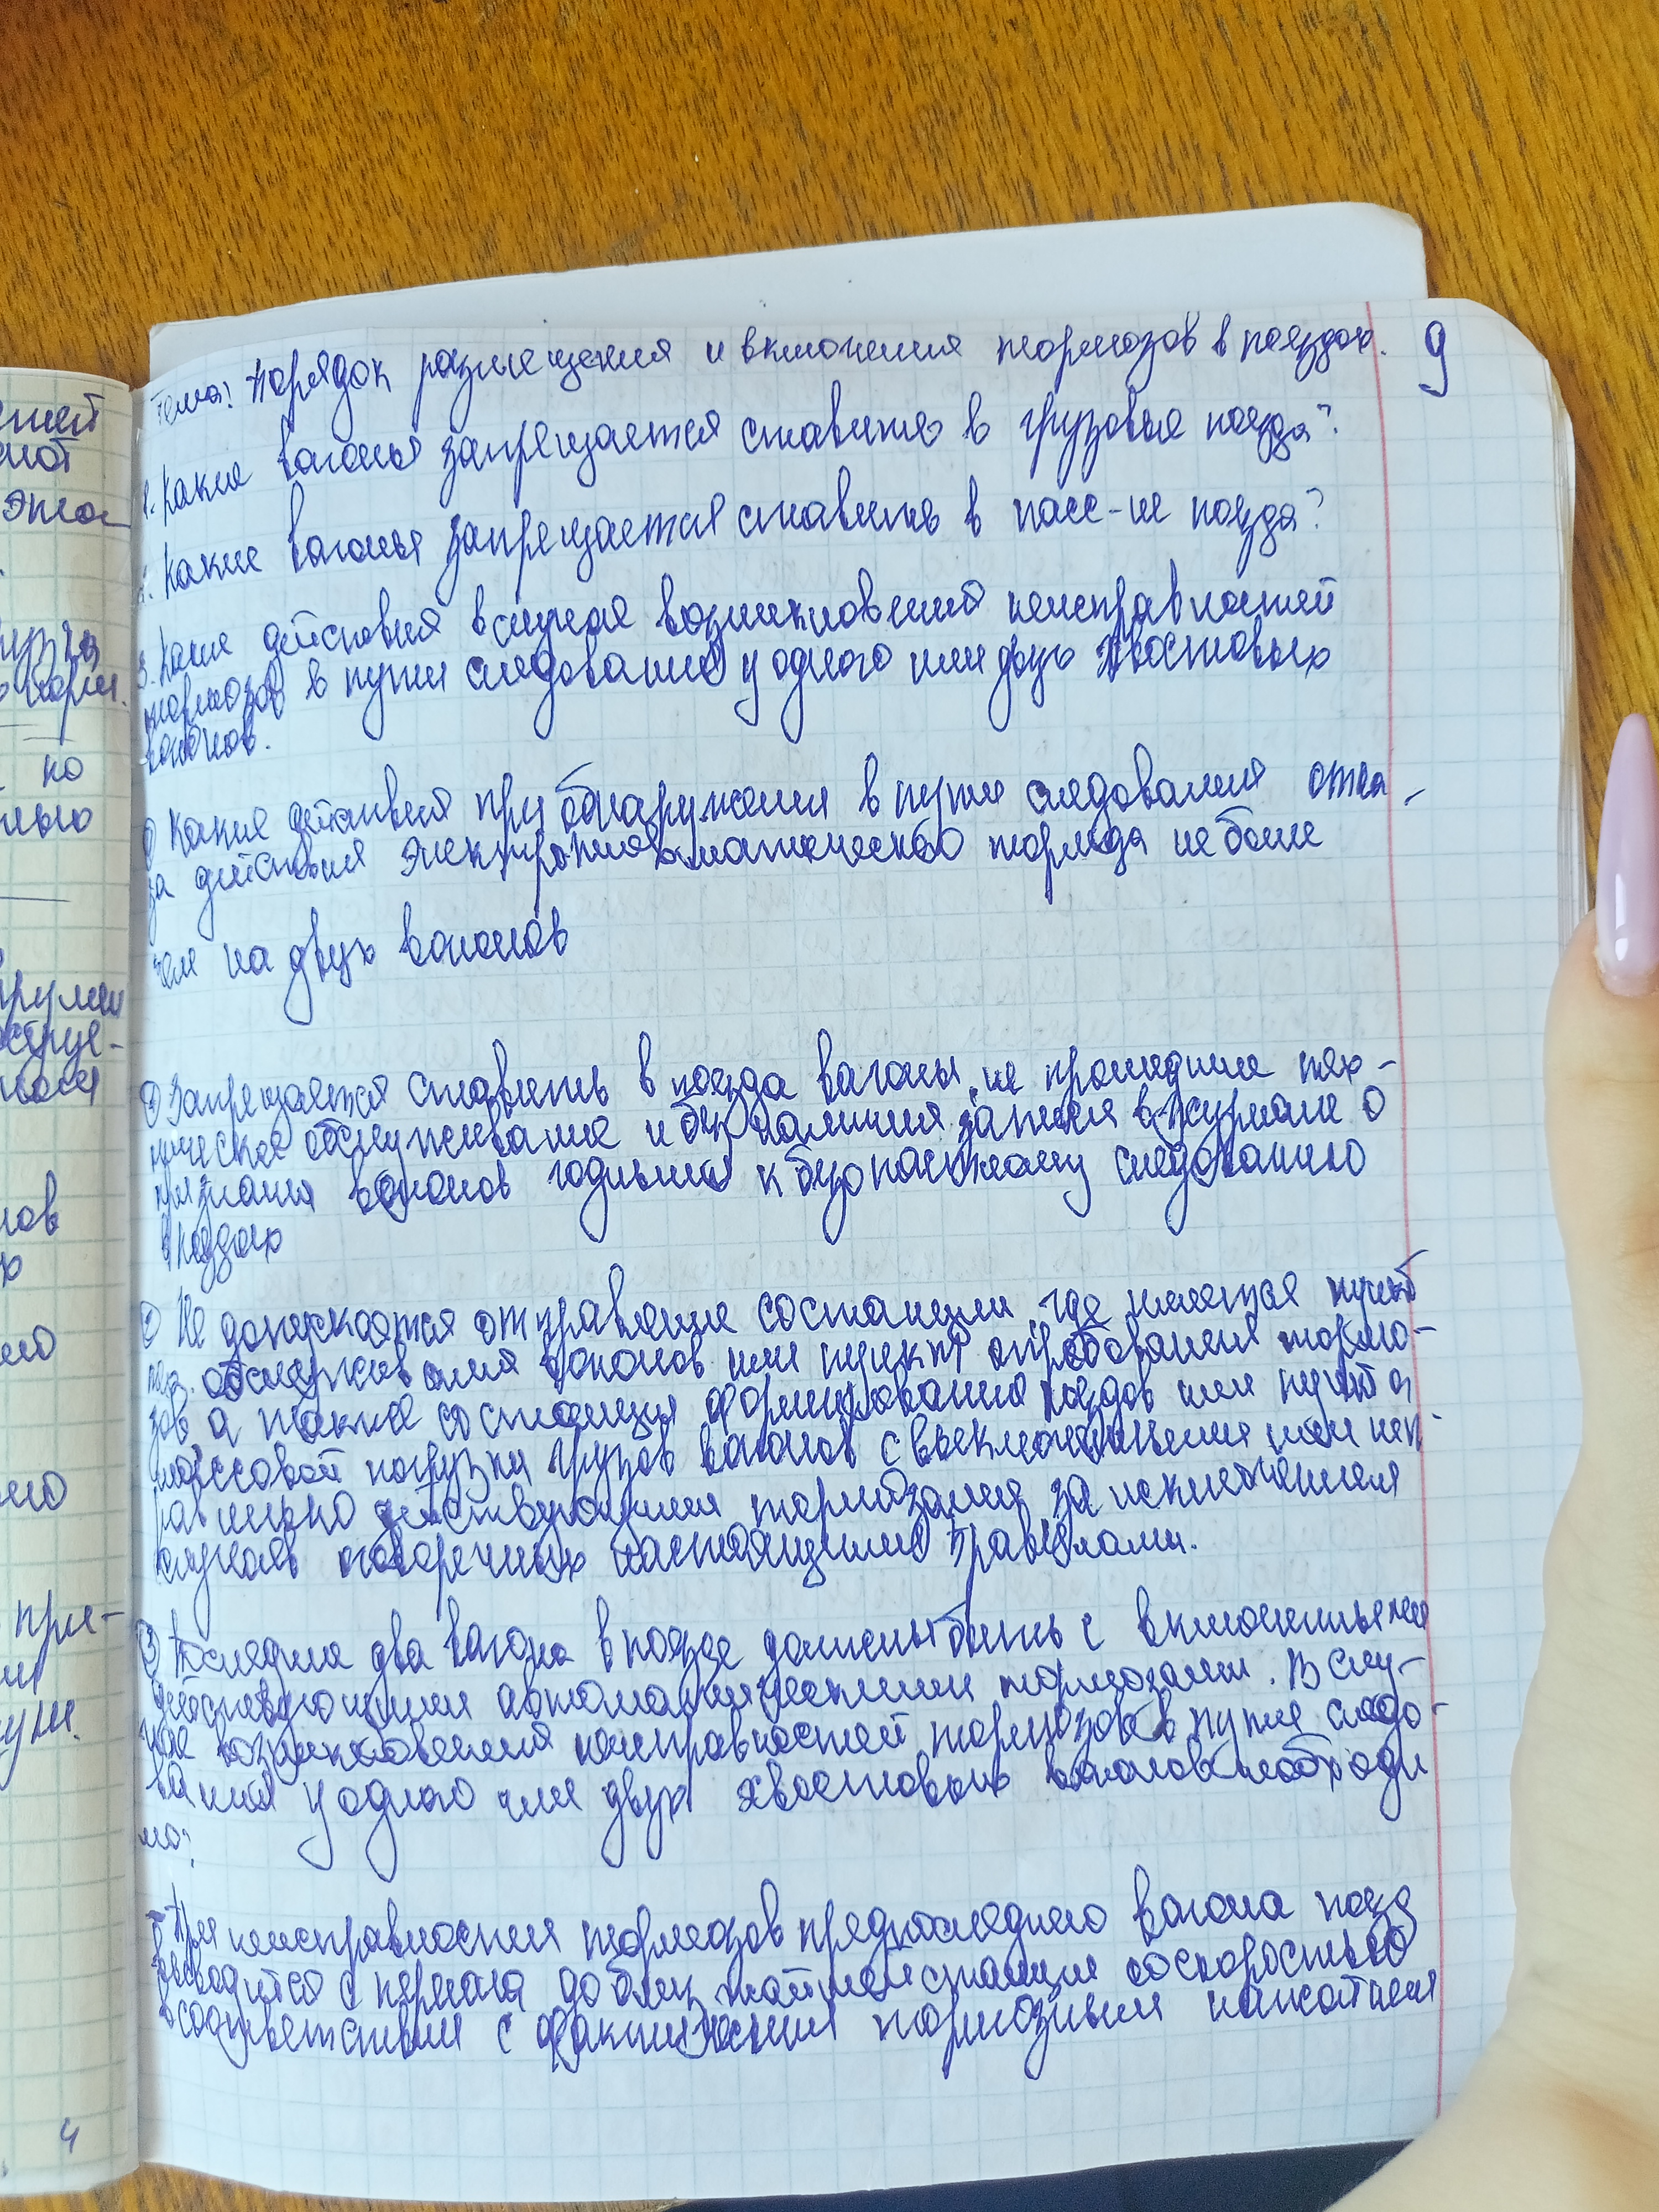 ку
но
4
Тема: Порядок размещения и включения тормозов в поездах. 9
1. Какие вагоны запрещается ставить в грузовые поезда?
2. Какие вагоны запрещается ставить в пасс-ие поезда?
3. Какие действия в случае возникновений неисправностей
тормозов в пути следования у одного или двух хвостовых
вагонов.
Какие действия при обнаружении в пути следования отка-
за действия электропневматического тормоза не более
чем на двух вагонов
① Запрещается ставить в поезда вагоны, не прошедшие тех-
ническое обслуживание и без наличия записи в журнале о
признания вагонов годными к безопастному следованию
в поездах
② Не допускается отправление со станции, где имеется пункт
тех. обслуживания вагонов или пункт опробования тормо-
зов а также со станции формирования поездов или пункта
массовой погрузки грузов вагонов с выключенными или неп-
равильно действующими тормозами, за исключением
случаев оговоренных настоящими Правилами.
③ Последние два вагона в поезде должны быть с включенными
действующими автоматическими тормозами. В слу-
чае возникновения неисправностей тормозов в пути следо-
вания у одного или двух хвостовых вагонов необходи
мо:
- При неисправности тормозов предпоследнего вагона поезд
выводится с перегона до ближайшей станции со скоростью
в соответствии с фактическим тормозным нажатием